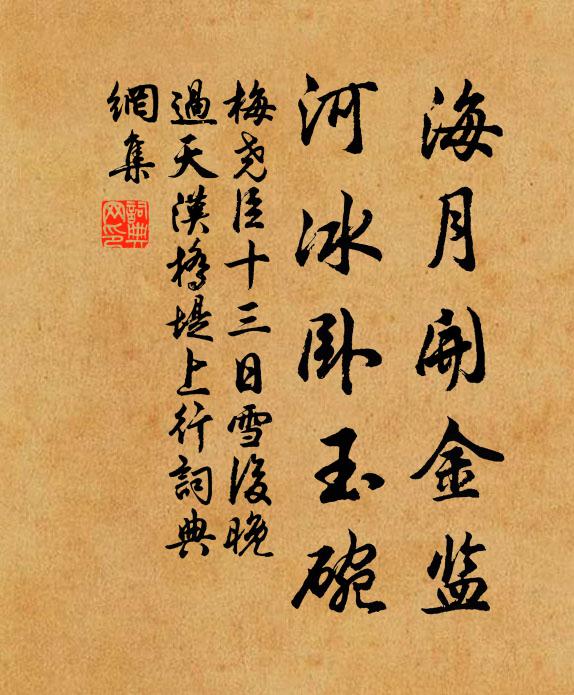 海月開金监
河冰卧玉碗
梅尧臣十三日雪後晚
過天漢橋堤上行詞典
網集
詞典
网印